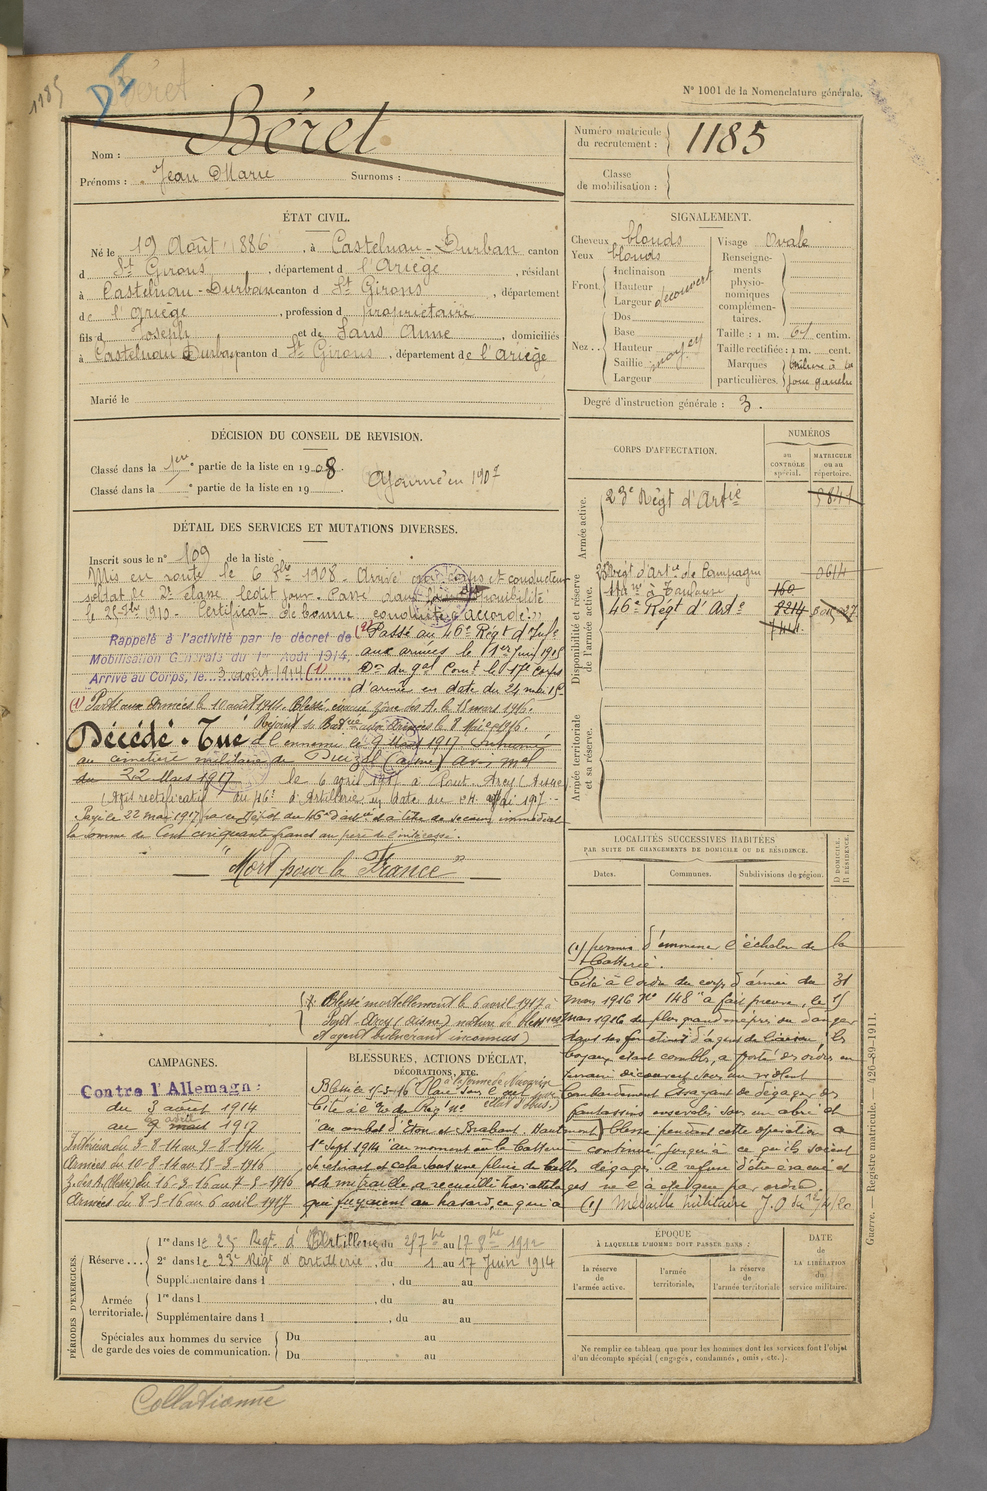 1185
Béret
N° 1001 de la Nomenclature générale.
Béret
Nom :
Prénoms : Jean Marie Surnoms :
Numéro matricule du recrutement : 1185
Classe de mobilisation :
ÉTAT CIVIL.
Né le 19 Août 1886, à Castelnau-Durban canton
d St Girons, département d l'Ariège, résidant
à Castelnau-Durban canton d St Girons, département
de l'Ariège, profession de propriétaire
fils d Joseph et de Sans Anne, domiciliés
à Castelnau Durban canton d St Girons, département de l'Ariège
Marié le
SIGNALEMENT.
Cheveux blonds
Yeux blonds
Front. Inclinaison
Hauteur
Largeur découvert
Nez.. Dos
Base
Hauteur moyen
Saillie
Largeur
Visage Ovale
Renseignements physionomiques complémentaires.
Taille : 1 m. 64 centim.
Taille rectifiée : 1 m. cent.
Marques particulières. à la joue gauche
Degré d'instruction générale : 3.
DÉCISION DU CONSEIL DE REVISION.
Classé dans la 1ere partie de la liste en 1908.
Classé dans la e partie de la liste en 19
Ajourné en 1907
CORPS D'AFFECTATION.
NUMÉROS
au CONTRÔLE spécial.
MATRICULE ou au répertoire.
Armée active.
23e Régt d'Artie
Disponibilité et réserve de l'armée active.
23 Régt d'Artie de Campagne
à Toulouse
46e Régt d'Artie
Armée territoriale et sa réserve.
DÉTAIL DES SERVICES ET MUTATIONS DIVERSES.
Inscrit sous le n° 109 de la liste
Mis en route le 6 8bre 1908. Arrivé au corps et conducteur
soldat de 2e classe ledit jour. Passé dans la disponibilité
le 25 7bre 1910. Certificat de bonne conduite accordé.
Rappelé à l'activité par le décret de
Mobilisation Générale du 1er Août 1914,
Arrivé au Corps, le 3 août 1914 (1)
Passé au 46e Régt d'
aux armées le 1er Juin 1915
On du gal Comt le 17e Corps
d'armée en date du 24 mai 15
(1) Parti aux Armées le 10 août 1914. Blessé, évacué zône des A. le 15 mars 1916.
Rejoint sa Batrie aux Armées le 8 Mai 1916.
Décédé. Tué à l'ennemi le 9 Mars 1917 Inhumé
au cimetière militaire de (aisne) avis mel
du 22 Mars 1917 le 6 avril 1917 à Pont-Arcy (Aisne)
(Avis rectificatif du 46e d'Artillerie en date du 24 Mai 1917.
Payé le 22 mai 1917 par le Dépot du 46e d'artie à titre de secours immédiat
la somme de Cent cinquante francs au père de l'intéressé.
"Mort pour la France"
Blessé mortellement le 6 avril 1917 à
Pont-Arcy (Aisne) nature de blessures
et agent vulnérant inconnus)
LOCALITÉS SUCCESSIVES HABITÉES
PAR SUITE DE CHANGEMENTS DE DOMICILE OU DE RÉSIDENCE.
Dates.
Communes.
Subdivisions de région.
D DOMICILE. R RÉSIDENCE.
(1) permis d'emmener l'échelon de la
batterie.
Cité à l'ordre du corps d'armée du 31
mars 1916 n° 148 "a fait preuve, le 15
mars 1916 du plus grand mépris du danger
dans ses fonctions d'agent de liaison, les
boyaux étant comblés, a porté des ordres en
terrain découvert sous un violent
bombardement. Essayant de dégager des
fantassins ensevelis sous un abri et
blessé pendant cette opération a
continué jusqu'à ce qu'ils soient
dégagés. A refusé d'être évacué et
ne l'a été que par ordre.
(1) Médaille militaire J.O du /20
CAMPAGNES.
Contre l'Allemagne :
du 3 août 1914
au 9 mars avril 1917
Intérieur du 3-8-14 au 9-8-1914.
Armées du 10-8-14 au 15-3-1916
Z. des A. (blessé) du 16-3-16 au 7-5-1916
Armées du 8-5-16 au 6 avril 1917
BLESSURES, ACTIONS D'ÉCLAT,
DÉCORATIONS, ETC.
Blessé le 15-3-16
éclat d'obus.)
Cité à l' du Régt n°
"au combat d'Eton et Brabant
1er Sept 1914 au moment où la batterie
se retirait et cela sous une pluie de balles
et de mitraille a recueilli huit attelages
qui fuyaient au hasard, ce qui a
PÉRIODES D'EXERCICES.
Réserve... 1re dans le 23 Régt d'Artillerie, du 25 7bre au 17 8bre 1912
2e dans le 23e Régt d'artillerie, du 1 au 17 Juin 1914
Supplémentaire dans l , du au
Armée territoriale. 1re dans l , du au
Supplémentaire dans l , du au
Spéciales aux hommes du service de garde des voies de communication. Du au
Du au
ÉPOQUE
À LAQUELLE L'HOMME DOIT PASSER DANS :
la réserve de l'armée active.
l'armée territoriale.
la réserve de l'armée territoriale
DATE de LA LIBÉRATION du service militaire.
Ne remplir ce tableau que pour les hommes dont les services font l'objet
d'un décompte spécial (engagés, condamnés, omis, etc.).
Guerre. — Registre matricule. — 426-89-1911.
Collationné